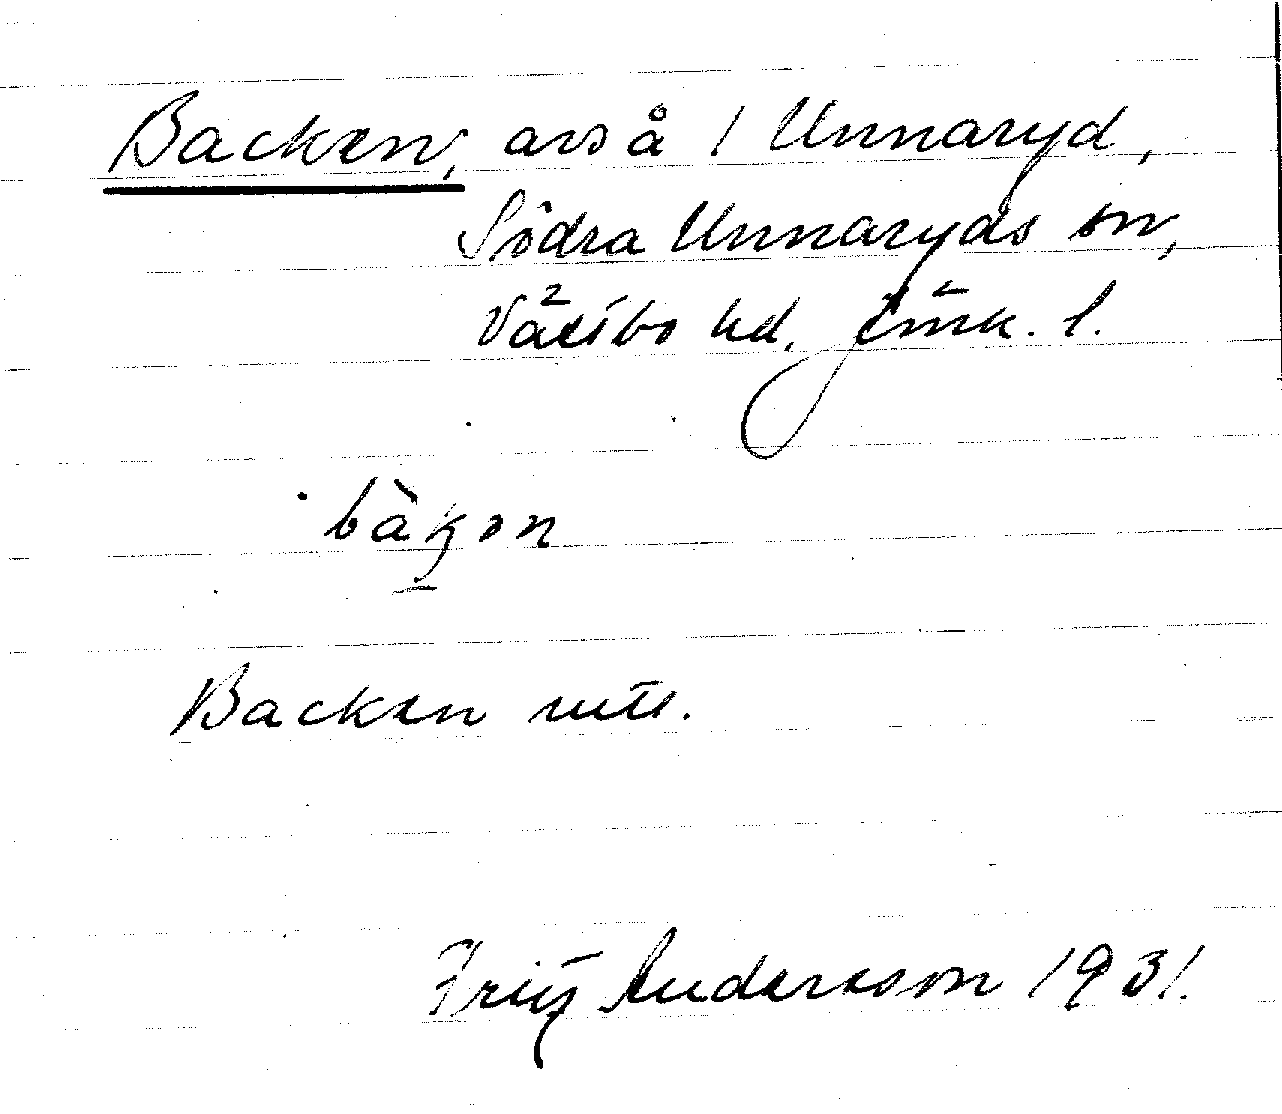 Backen, avs å 1 Unnaryd,
Södra Unnaryds sn,
Västbo hd, Jönk. l.
bàkən
Backen uttl.
Fritz Andersson 1931.